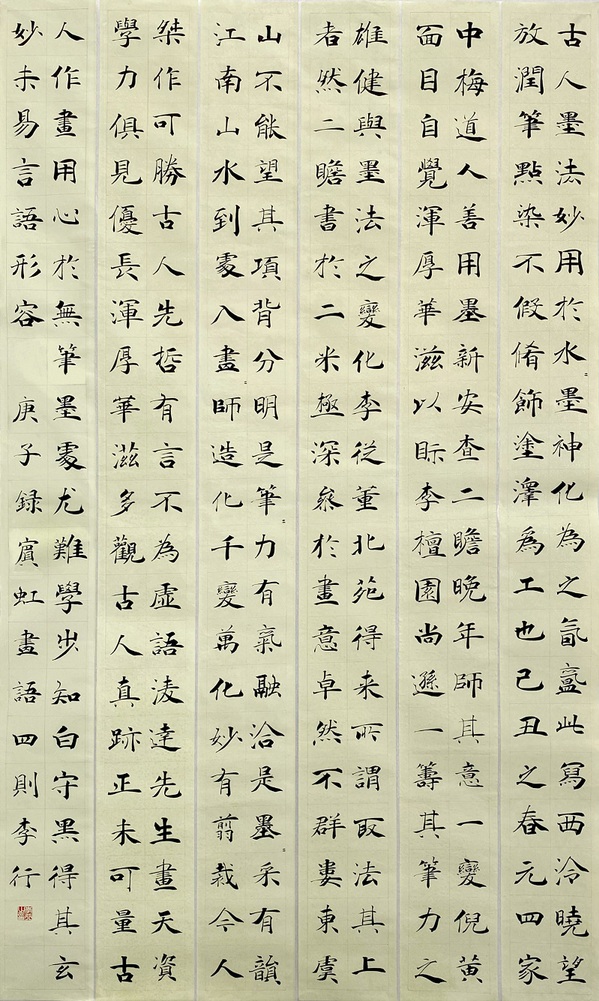 古人墨法妙用於水墨神化為之氤氳此寫西泠曉望
放潤筆點染不假脩飾塗澤為工也己丑之春元四家
中梅道人善用墨新安查二瞻晚年師其意一變倪黃
面目自覺渾厚華滋以眎李檀園尚遜一籌其筆力之
雄健與墨法之變化李從董北苑得來所謂取法其上
者然二瞻書於二米極深參於畫意卓然不群婁東虞
山不能望其項背分明是筆力有氣融洽是墨采有韻
江南山水到處入畫師造化千變萬化妙有翦裁今人
桀作可勝古人先哲有言不為虛語淩達先生畫天資
學力俱見優長渾厚華滋多觀古人真跡正未可量古
人作畫用心於無筆墨處尤難學步知白守黑得其玄
妙未易言語形容 庚子録賓虹畫語四則李行